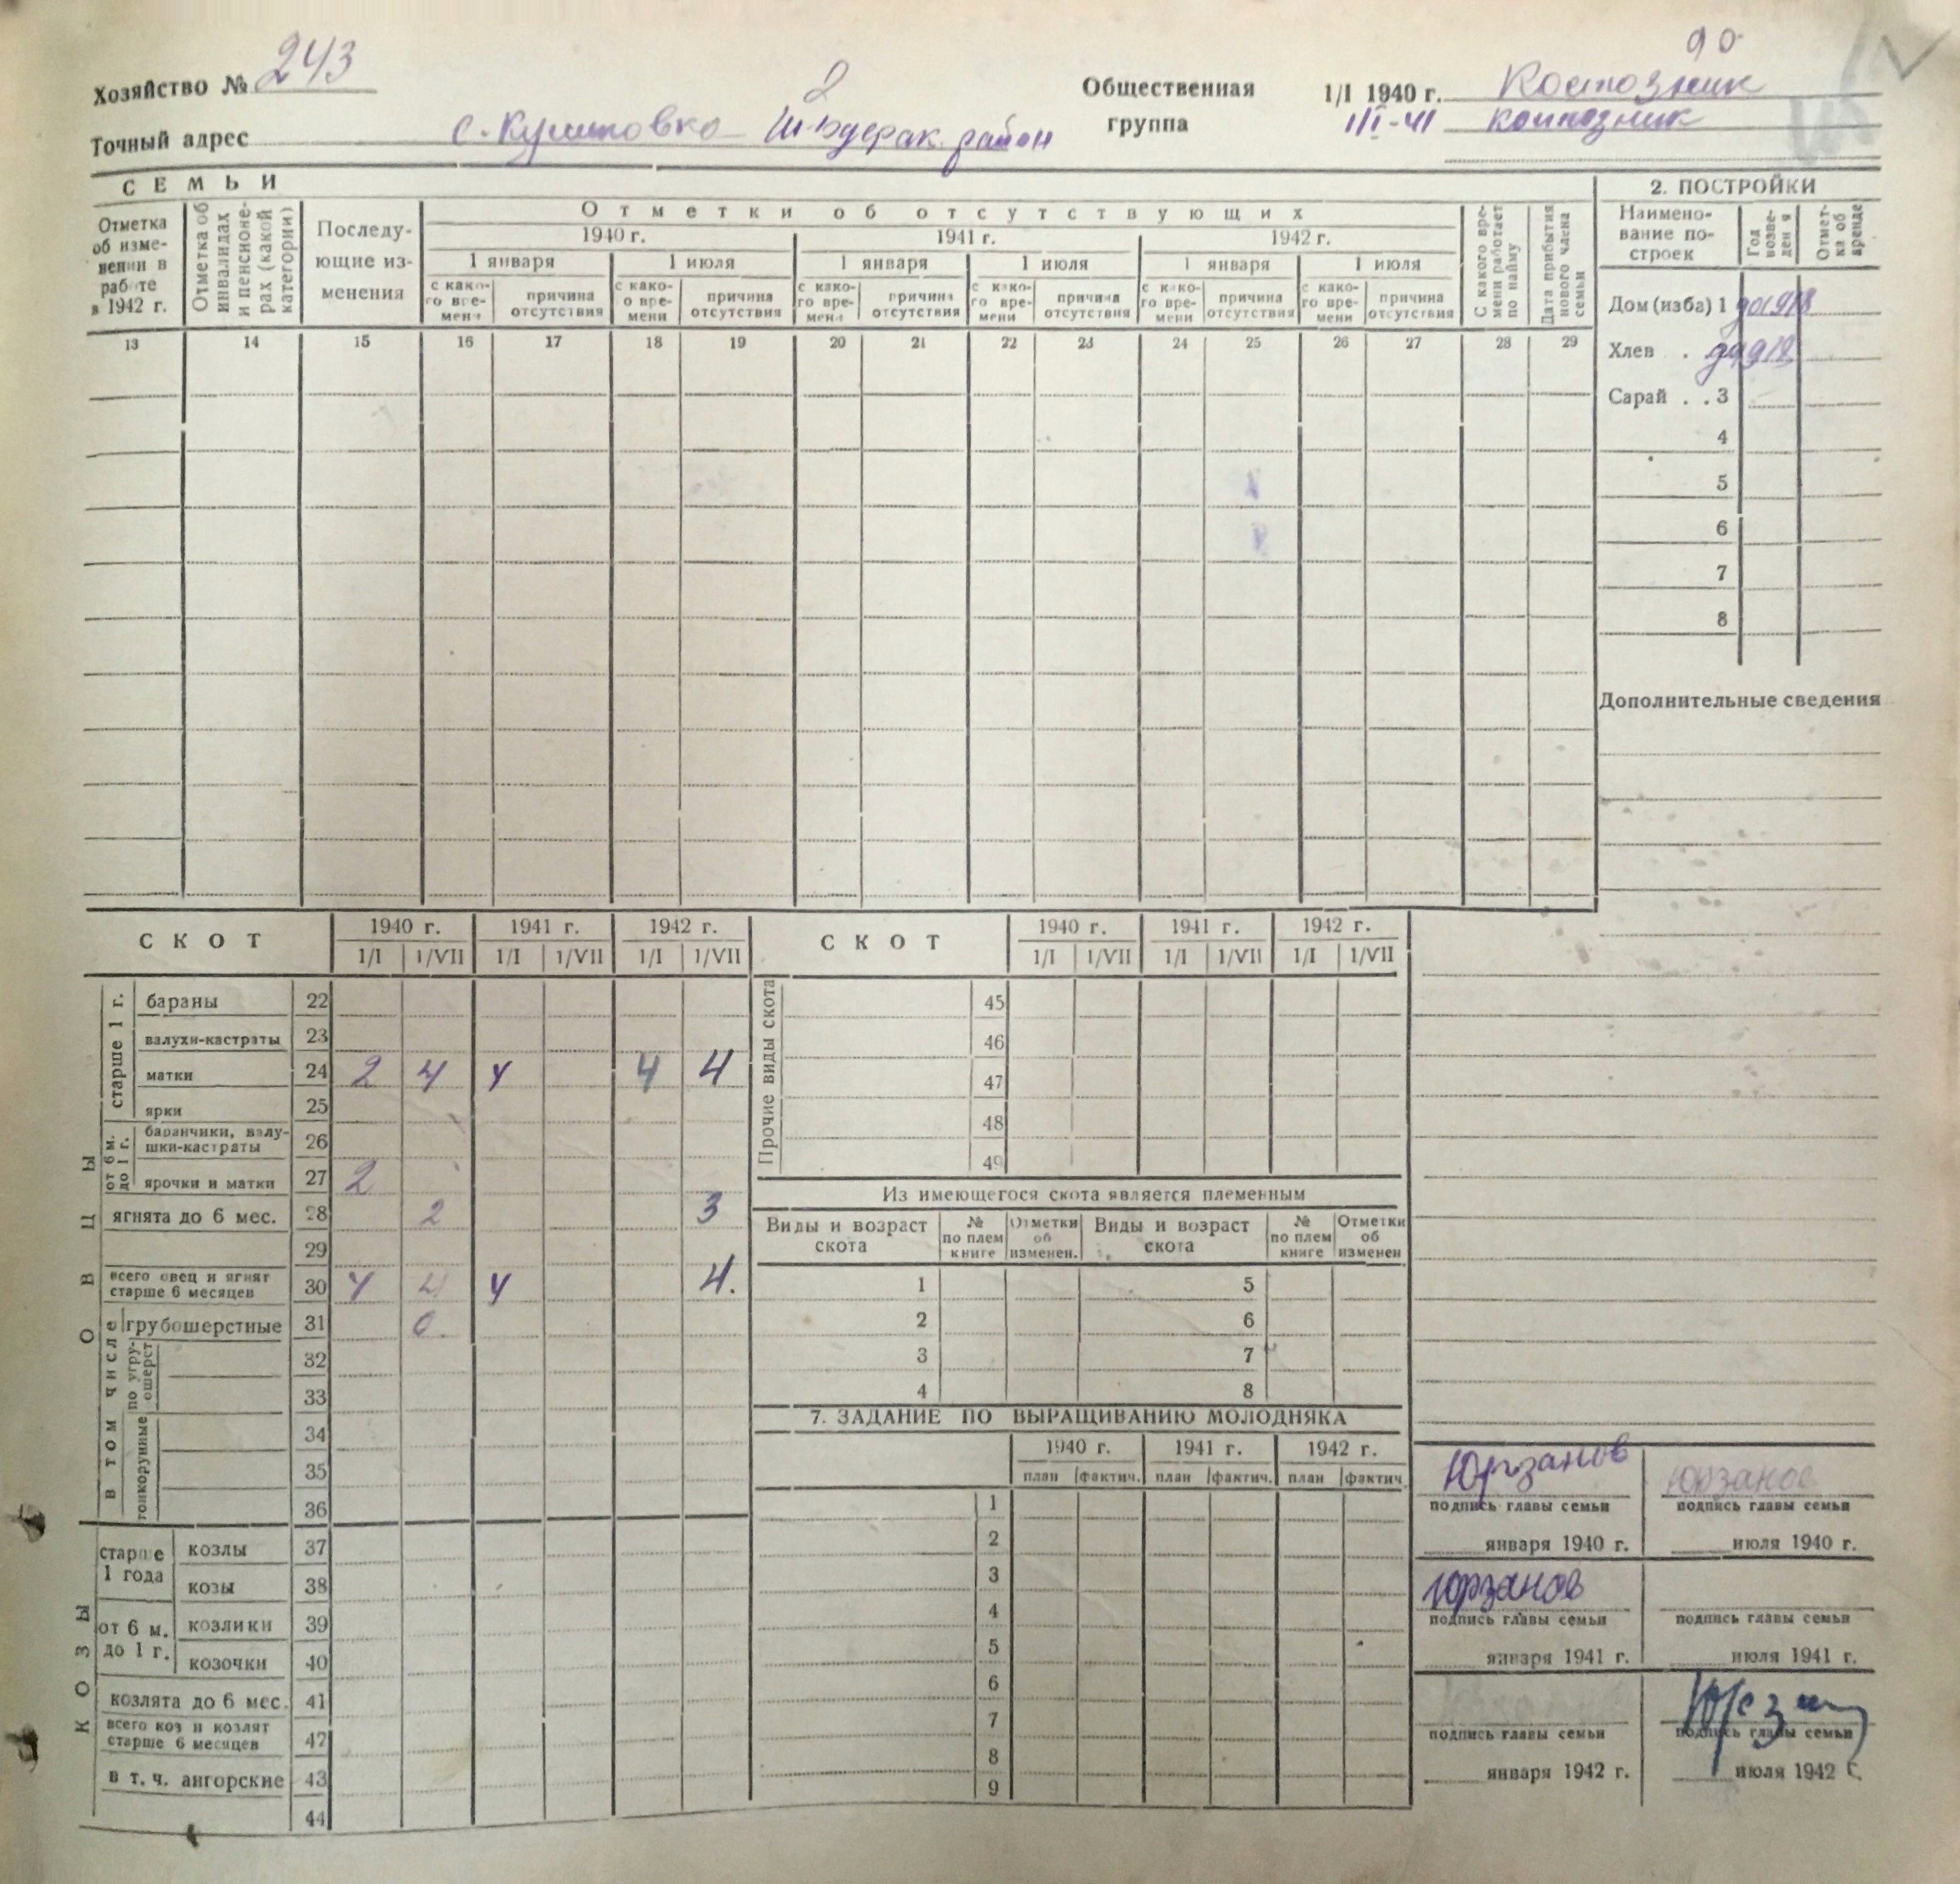 90
Хозяйство № 243
Общественная группа
1/I 1940 г. Колхозник
1/I-41 колхозник
Точный адрес с. район
СЕМЬИ
Отметка об изменении в работе в 1942 г.
Отметка об инвалидах и пенсионерах (какой категории)
Последующие изменения
Отметки об отсутствующих
1940 г. 1941 г. 1942 г.
1 января 1 июля 1 января 1 июля 1 января 1 июля
с како-го вре-мени причина отсутствия с како-го вре-мени причина отсутствия с како-го вре-мени причина отсутствия с како-го вре-мени причина отсутствия с како-го вре-мени причина отсутствия с како-го вре-мени причина отсутствия
С какого вре-мени работает по найму
Дата прибытия нового члена семьи
13 14 15 16 17 18 19 20 21 22 23 24 25 26 27 28 29
2. ПОСТРОЙКИ
Наимено-вание по-строек
Год возве-дения
Отмет-ка об аренде
Дом (изба) 1 до 1918
Хлев . до 1918
Сарай . . 3
4
5
6
7
8
Дополнительные сведения
СКОТ 1940 г. 1941 г. 1942 г.
1/I 1/VII 1/I 1/VII 1/I 1/VII
ОВЦЫ
старше 1 г.
бараны 22
валухи-кастраты 23
матки 24 2 4 4 4 4
ярки 25
от 6 м. до 1 г.
баранчики, валу-шки-кастраты 26
ярочки и матки 27 2
ягнята до 6 мес. 28 2 3
29
всего овец и ягнят старше 6 месяцев 30 4 4 4 4.
в том числе
грубошерстные 31 0.
по угру-ошерст 32
33
тонкорунные 34
35
36
КОЗЫ
старше 1 года
козлы 37
козы 38
от 6 м. до 1 г.
козлики 39
козочки 40
козлята до 6 мес. 41
всего коз и козлят старше 6 месяцев 42
в т. ч. ангорские 43
44
СКОТ 1940 г. 1941 г. 1942 г.
1/I 1/VII 1/I 1/VII 1/I 1/VII
Прочие виды скота
45
46
47
48
49
Из имеющегося скота является племенным
Виды и возраст скота № по плем книге Отметки об изменен. Виды и возраст скота № по плем книге Отметки об изменен
1 5
2 6
3 7
4 8
7. ЗАДАНИЕ ПО ВЫРАЩИВАНИЮ МОЛОДНЯКА
1940 г. 1941 г. 1942 г.
план фактич. план фактич. план фактич
1
2
3
4
5
6
7
8
9
Юрзанов Юрзанов
подпись главы семьи подпись главы семьи
января 1940 г. июля 1940 г.
Юрзанов
подпись главы семьи подпись главы семьи
января 1941 г. июля 1941 г.
подпись главы семьи подпись главы семьи
января 1942 г. июля 1942 г.